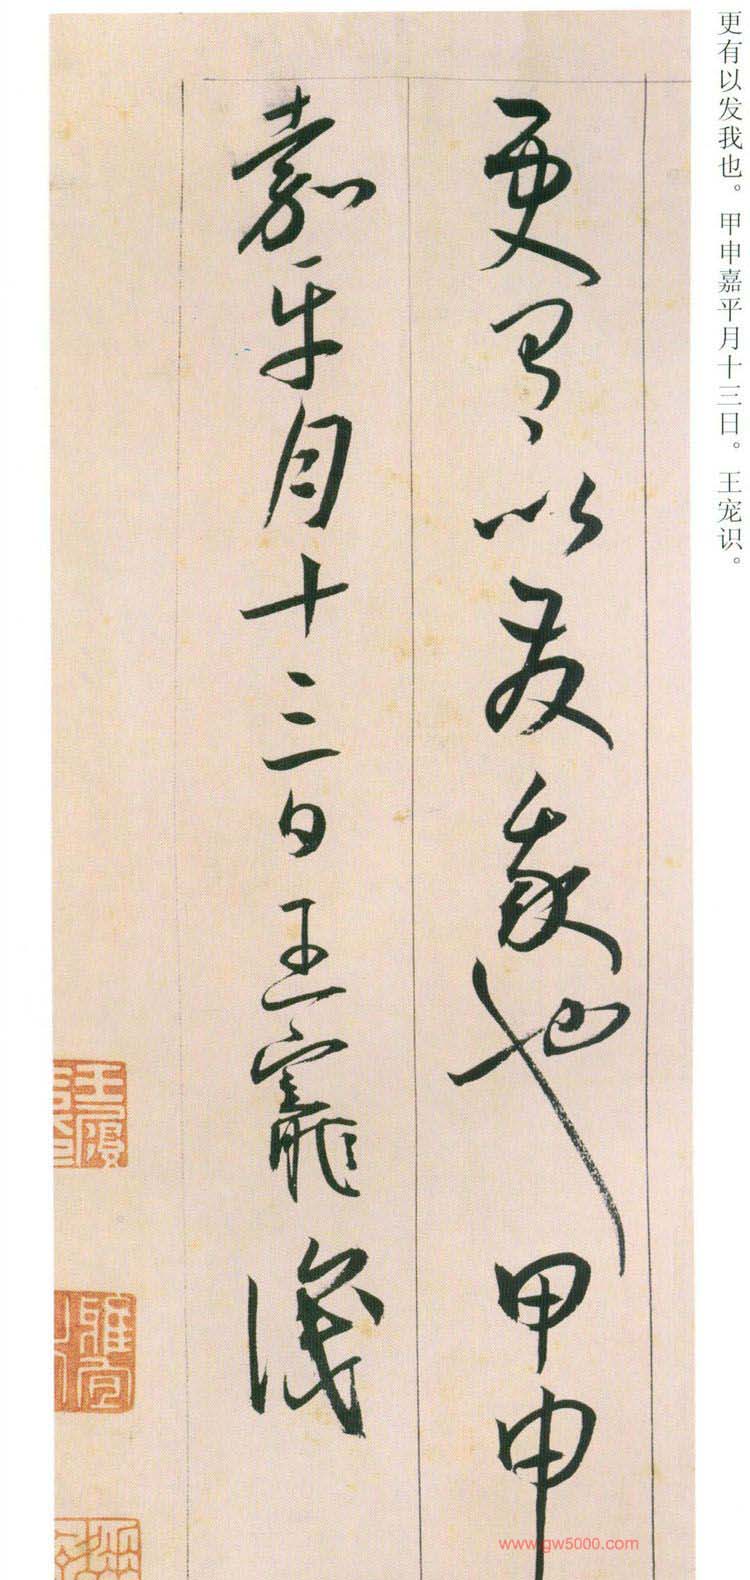 更有以发我也。甲申嘉平月十三日。王宠识。
更有以發我也甲申
嘉平月十三日王寵識
www.gw5000.com